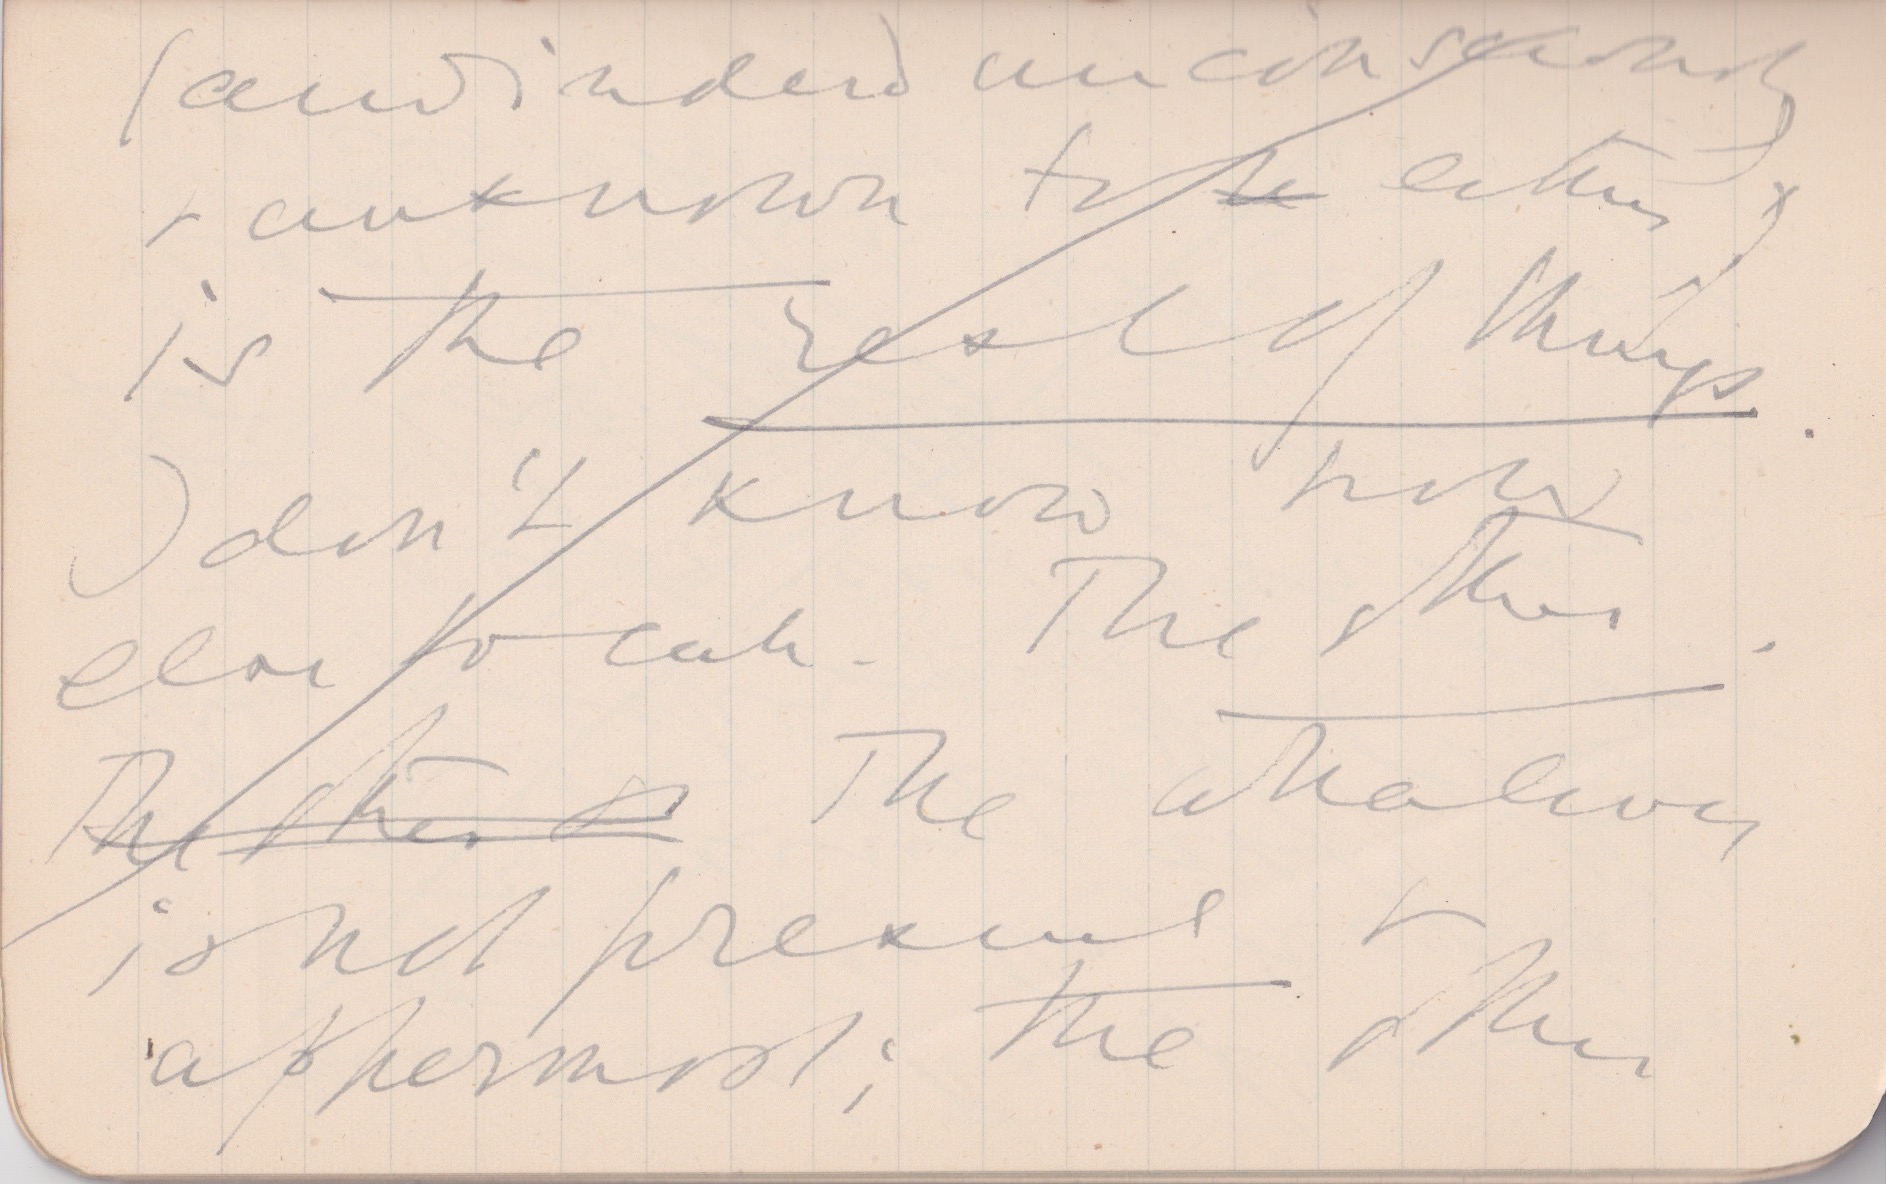 (and indeed unconsciously
& unknown to either)
is the rest of things.
I don't know how
else to call. The other.
The other is The
is not present &
uppermost; the other